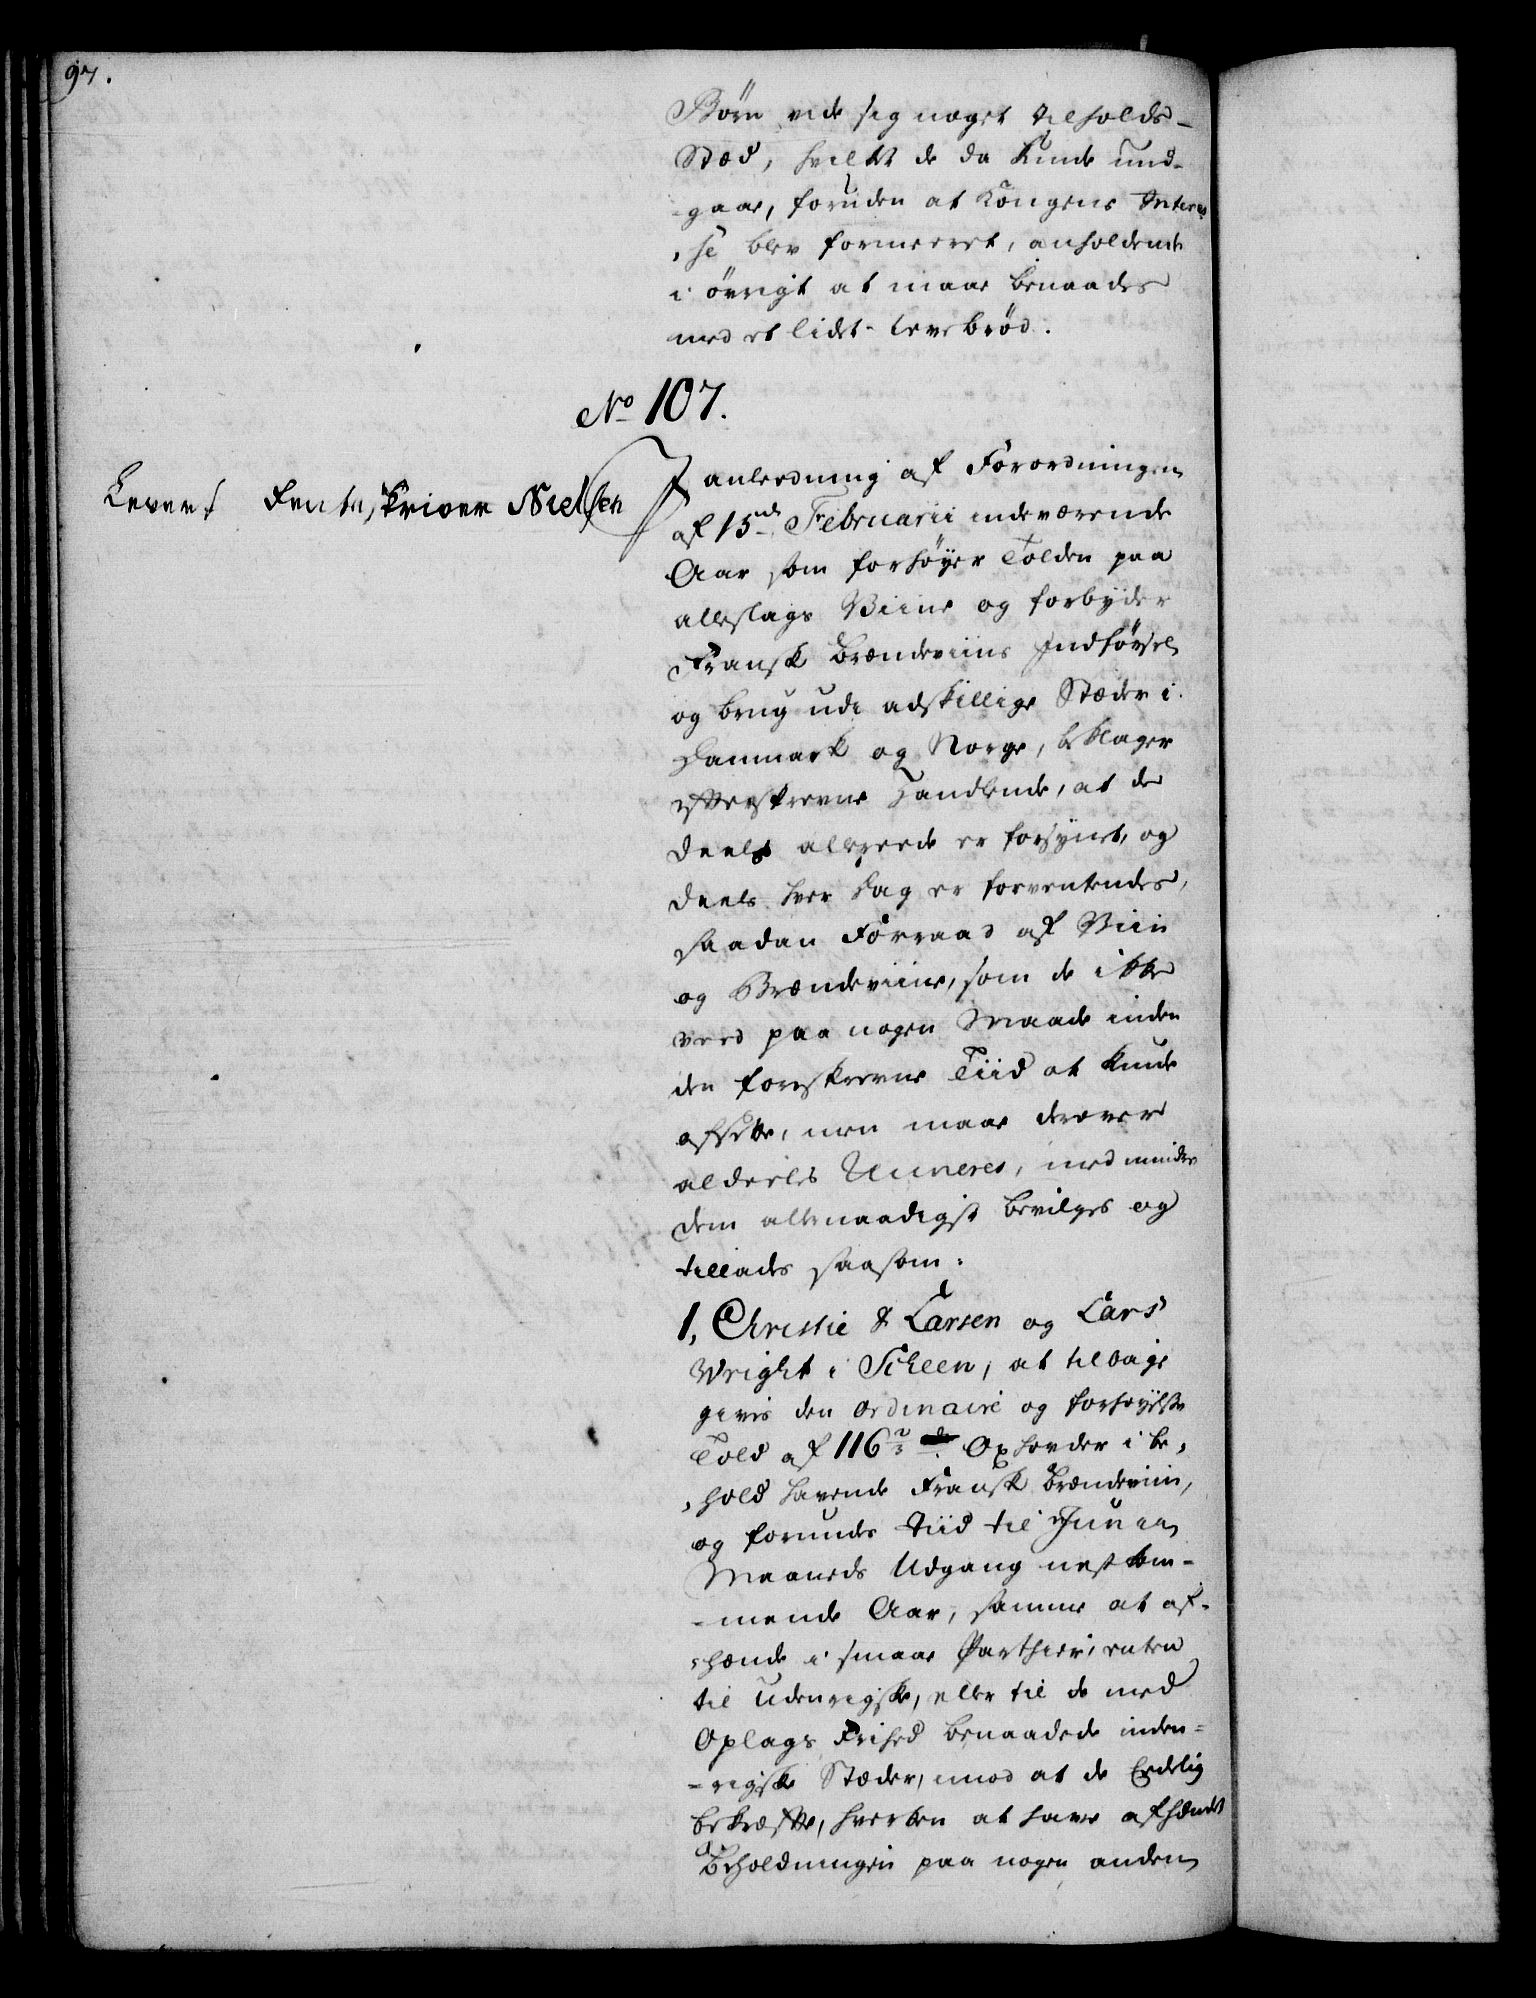 97.
Børn vide sig noget tilholds-
Stæd, hvilket de da kunde und-
-gaae, foruden at Kongens Interes
,se blev formeeret, anholdende
i øvrigt at maae benaades
med et lidet levebrød.
No 107.
Levert Renteskriver Nielsen
I anledning af Forordningen
af 15de Februarii indeværende
Aar som forhøyer Tolden paa
alleslags Viine og forbyder
Fransk Brændeviins Indførsel
og brug udi adskillige Stæder i
Danmark og Norge, beklager
efterskrevne Handlende, at de
deels allereede er forsynet, og
deels hver Dag er forventendes,
saadan Forraad af Viin
og Brændeviine, som de ikke
veed paa nogen Maade inden
den foreskrevne Tiid at kunde
afsette, men maae derover
aldeeles Ruineres, med mindre
dem allernaadigst bevilges og
tillades saasom:
1, Christie & Larsen og Lars
Wright i Scheen, at tilbage
gives den ordinaire og forhøyede
Told af 116 2/3 Oxhoveder i be,
,hold havende Fransk Brændeviin,
og forundes Tiid til Junii
Maaneds Udgang nestkom-
-mende Aar, samme at af-
-hænde i smaae Parthier, enten
til Udenrigske, eller til de med
Oplags Frihed benaadede inden-
-rigske Stæder, imod at de Eedelig
bekræfte, hverken at have afhændet
Beholdningen paa nogen anden